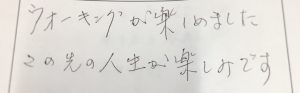 ウオーキングが楽しめました
この先の人生が楽しみです